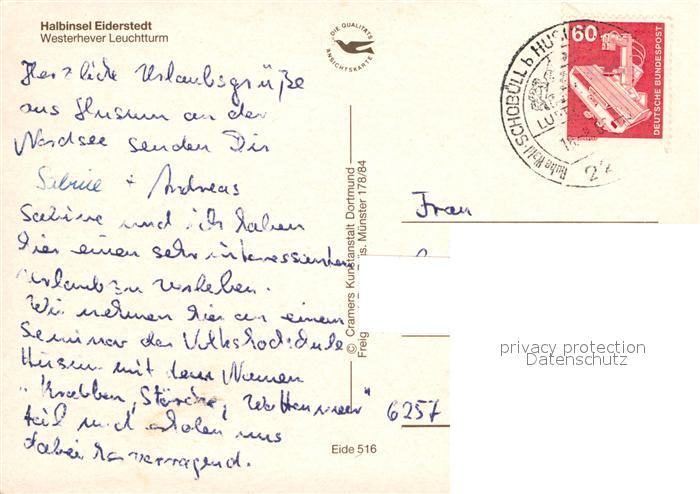 Halbinsel Eiderstedt
Westerhever Leuchtturm
DIE QUALITÄTS
ANSICHTSKARTE
Herzliche Urlaubsgrüße
aus Husum an der
Nordsee senden Dir
Sabine + Andreas
Sabine und ich haben
hier einen sehr interessanten
Urlaub zu verleben.
Wir nehmen hier an einem
Seminar der Volkshochschule
Husum mit dem Namen
"Krabben, Störche, Wattenmeer"
teil und erholen uns
dabei hervorragend.
© Cramers Kunstanstalt Dortmund
Freig. Münster 178/84
Eide 516
SCHOBÜLL b HUSUM
60
DEUTSCHE BUNDESPOST
22
Frau
6257
privacy protection
Datenschutz